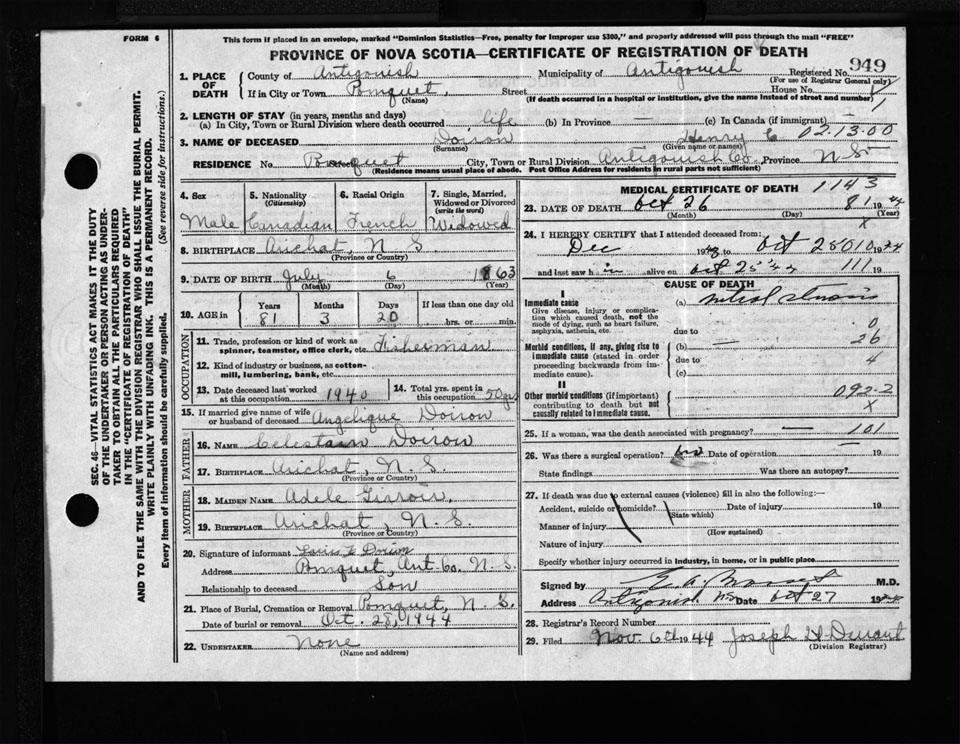 FORM 6
This form if placed in an envelope, marked "Dominion Statistics—Free, penalty for improper use $300," and properly addressed will pass through the mail "FREE"
PROVINCE OF NOVA SCOTIA—CERTIFICATE OF REGISTRATION OF DEATH
SEC. 46—VITAL STATISTICS ACT MAKES IT THE DUTY
OF THE UNDERTAKER OR PERSON ACTING AS UNDER-
TAKER TO OBTAIN ALL THE PARTICULARS REQUIRED
IN THE "CERTIFICATE OF REGISTRATION OF DEATH"
AND TO FILE THE SAME WITH THE DIVISION REGISTRAR WHO SHALL ISSUE THE BURIAL PERMIT.
WRITE PLAINLY WITH UNFADING INK. THIS IS A PERMANENT RECORD.
Every item of information should be carefully supplied. (See reverse side for instructions.)
1. PLACE OF DEATH County of Antigonish Municipality of Antigonish Registered No. 949
(For use of Registrar General only)
If in City or Town Pomquet, Street House No.
(Name) (If death occurred in a hospital or institution, give the name instead of street and number) 1
2. LENGTH OF STAY (in years, months and days)
(a) In City, Town or Rural Division where death occurred life (b) In Province — (c) In Canada (if immigrant) —
3. NAME OF DECEASED Doiron Henry C 02.13.00
(Surname) (Given name or names)
RESIDENCE No. Pomquet Street City, Town or Rural Division Antigonish Co. Province N.S.
(Residence means usual place of abode. Post Office Address for residents in rural parts not sufficient)
4. Sex 5. Nationality (Citizenship) 6. Racial Origin 7. Single, Married, Widowed or Divorced (write the word)
Male Canadian French Widowed
8. BIRTHPLACE Arichat, N.S.
(Province or Country)
9. DATE OF BIRTH July 6 1863
(Month) (Day) (Year)
10. AGE IN Years Months Days If less than one day old
81 3 20 hrs. or min.
OCCUPATION
11. Trade, profession or kind of work as spinner, teamster, office clerk, etc. Fisherman
12. Kind of industry or business, as cotton-mill, lumbering, bank, etc.
13. Date deceased last worked at this occupation 1940 14. Total yrs. spent in this occupation 50 yrs
15. If married give name of wife or husband of deceased Angelique Doiron
FATHER
16. NAME Celestain Doiron
17. BIRTHPLACE Arichat, N.S.
(Province or Country)
MOTHER
18. MAIDEN NAME Adele Girroir,
19. BIRTHPLACE Arichat, N.S.
(Province or Country)
20. Signature of informant Doiron
Address Pomquet, Ant. Co. N.S.
Relationship to deceased Son
21. Place of Burial, Cremation or Removal Pomquet, N.S.
Date of burial or removal Oct. 28, 1944
22. UNDERTAKER None
(Name and address)
MEDICAL CERTIFICATE OF DEATH 1143
23. DATE OF DEATH Oct 26 81 1944
(Month) (Day) (Year)
X
24. I HEREBY CERTIFY that I attended deceased from:
Dec 19 Oct 25 010 1944
and last saw him alive on Oct 25 44 111 19
CAUSE OF DEATH
I
Immediate cause (a) mitral stenosis
Give disease, injury or complication which caused death, not the mode of dying, such as heart failure, asphyxia, asthenia, etc.
due to 0
Morbid conditions, if any, giving rise to immediate cause (stated in order proceeding backwards from immediate cause).
(b) — 26
due to 4
(c)
II
Other morbid conditions (if important) contributing to death but not causally related to immediate cause. 092-2
X
25. If a woman, was the death associated with pregnancy? — 101
26. Was there a surgical operation? no Date of operation 19
State findings Was there an autopsy?
27. If death was due to external causes (violence) fill in also the following:—
Accident, suicide or homicide? Date of injury 19
(State which)
Manner of injury
(How sustained)
Nature of injury
Specify whether injury occurred in industry, in home, or in public place
Signed by M.D.
Address Antigonish NS Date Oct 27 1944
28. Registrar's Record Number
29. Filed Nov. 6th 1944 Joseph H Durant
(Division Registrar)